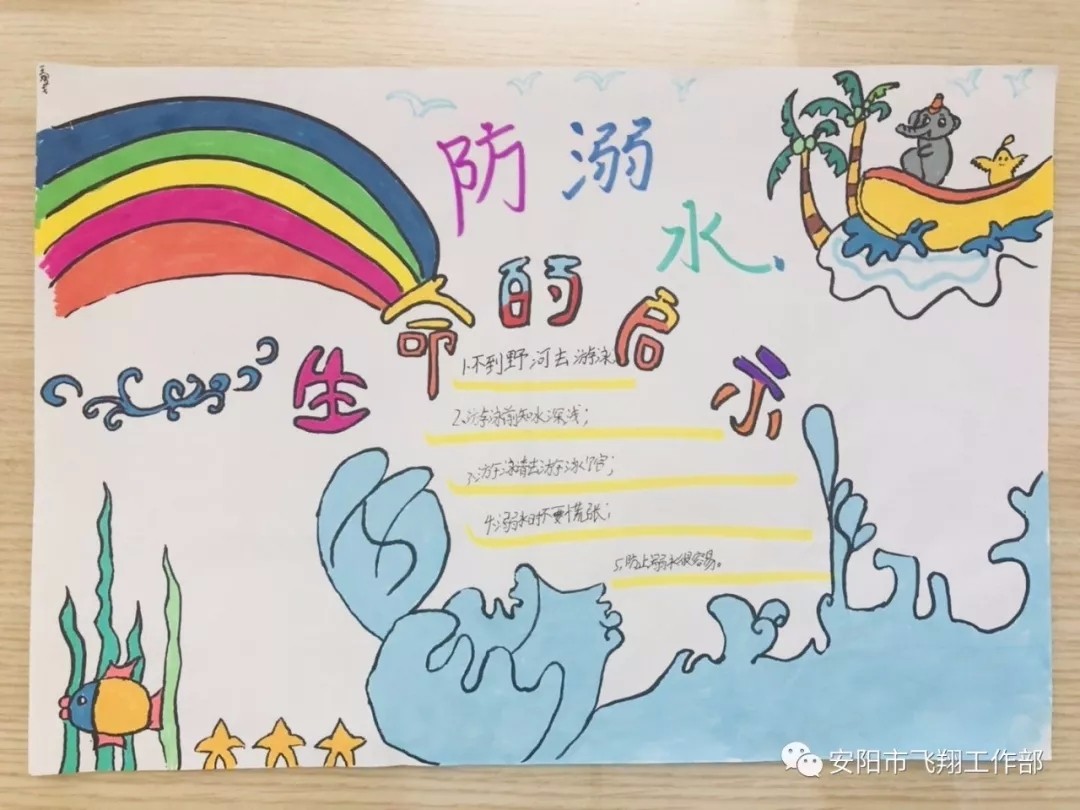 防溺水、
生命的启示
1.不到野河去游泳
2.游泳前知水深浅；
3.游泳请去游泳馆；
4.溺水时不要慌张；
5.防止溺水很容易。
安阳市飞翔工作部